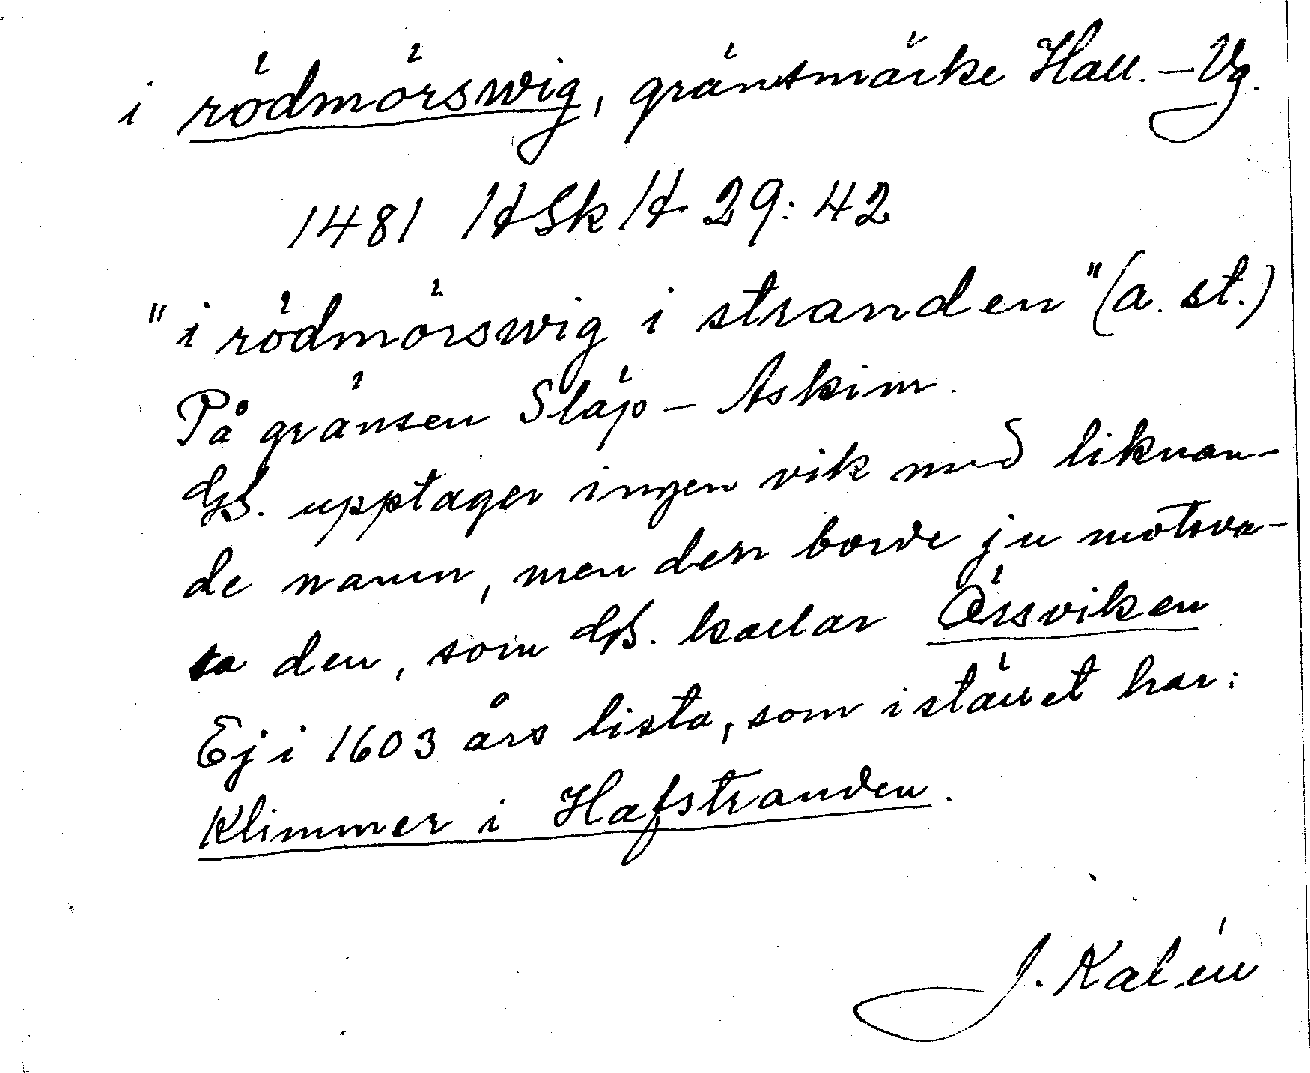 i rödmörswig, gränsmärke Hall. – Vg.
1481 HSkH 29: 42
"i rödmörswig i stranden" (a. st.)
På gränsen Släp – Askim.
GS. upptager ingen vik med liknan-
de namn, men den borde ju motsva-
ra den, som GS. kallar Örsviken
Ej i 1603 års lista, som istället har:
Klimmer i Hafstranden.
J. Kalén